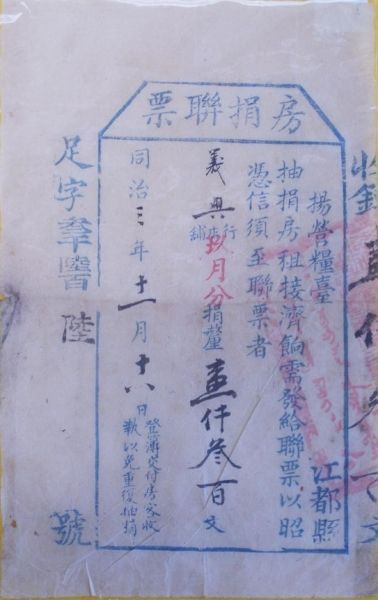 房捐聯票
揚營糧臺
江都縣
抽捐房租接濟餉需發給聯票以昭
憑信須至聯票者
義興行店舖玖月分捐釐壹仟叁百文
同治三年十一月十八日
登簿交付房客收
執以免重復抽捐
足字
陸
號